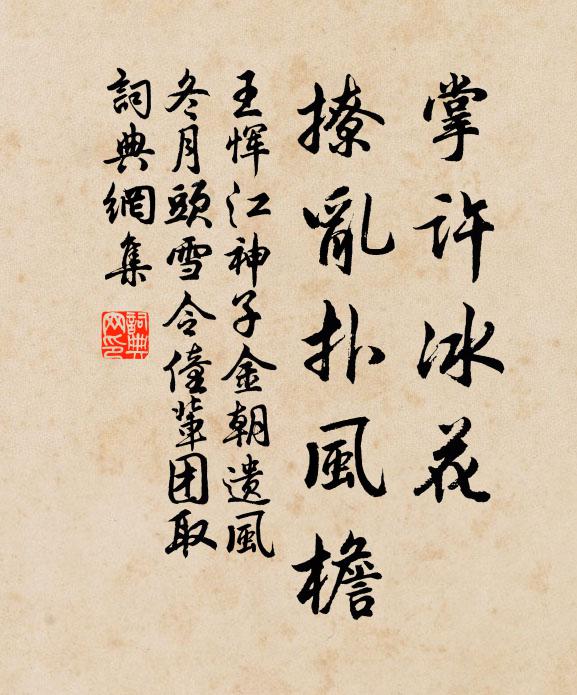 掌許冰花
撩亂扑風檐
王恽江神子金朝遺風
冬月頭雪令僮輩团取
詞典網集
詞典网印